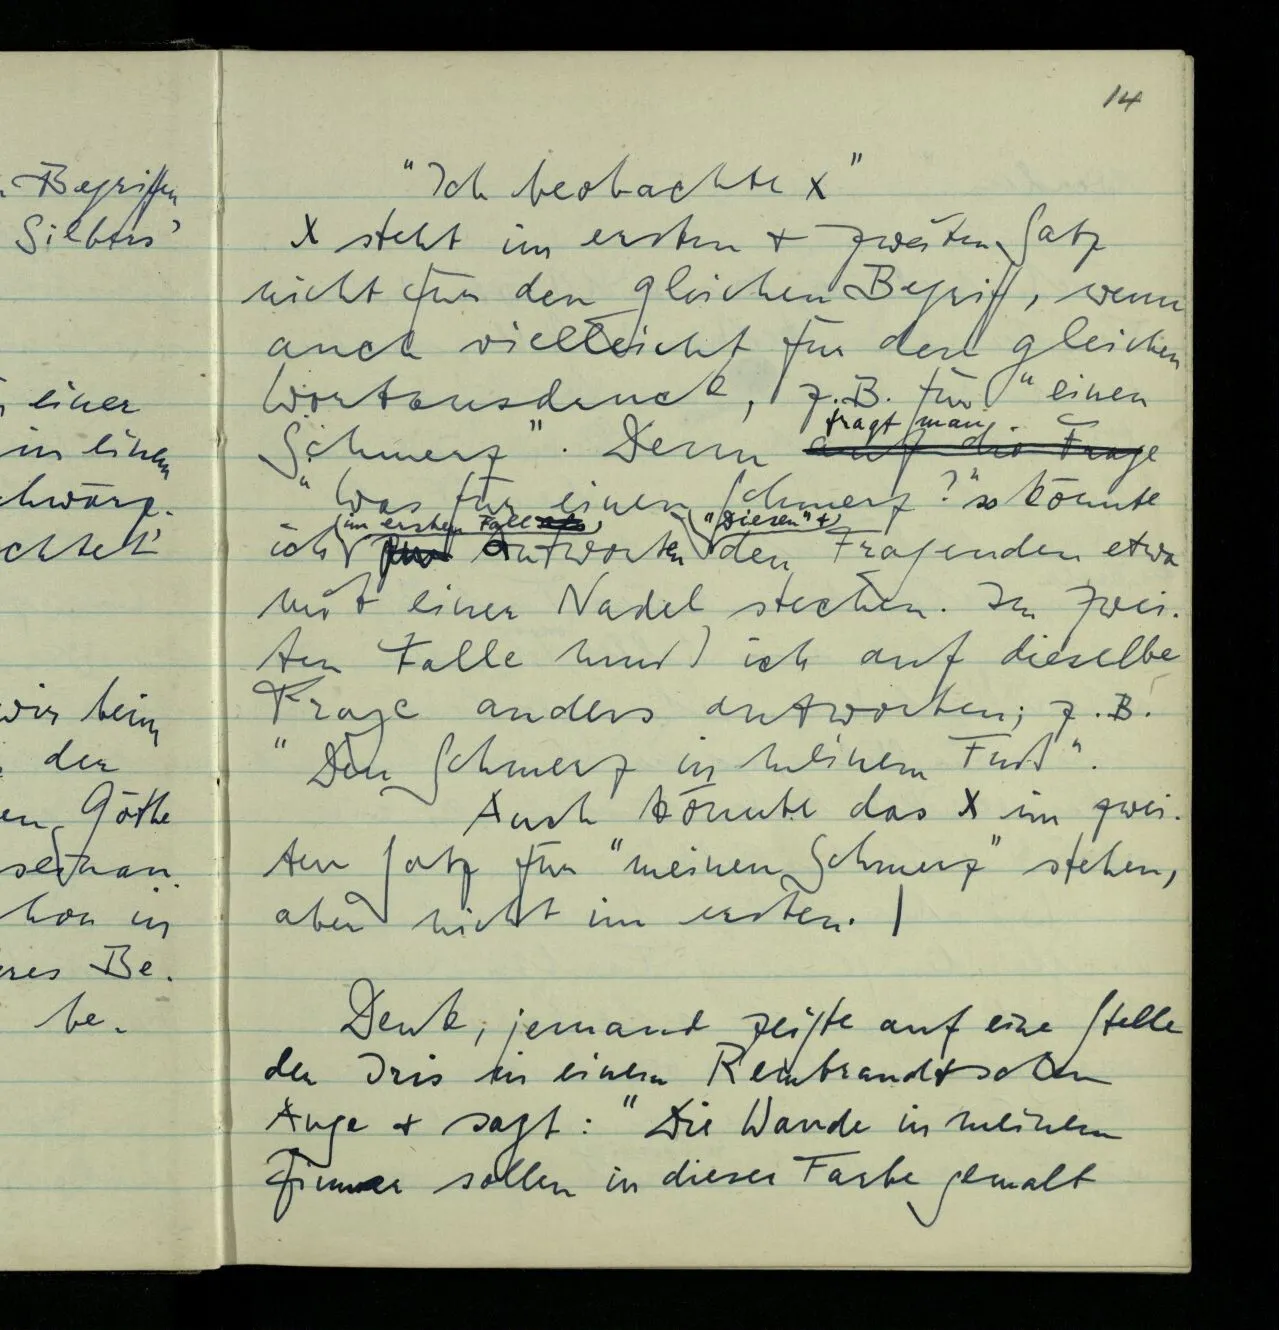 14
Begriffen
Silbers'
einer
in einem
chwarz-
chtet'
wir beim
der
en Göthe
seman
hon in
eres Be-
be-
"Ich beobachte X"
X steht im ersten + zweiten Satz
nicht für den gleichen Begriff, wenn
auch vielleicht für den gleichen
Wortausdruck, z.B. für "einen
fragt man
Schmerz". Denn auf die Frage
"Was für einen Schmerz?" so könnte
im ersten Fall "Diesen" +
ich antworten den Fragenden etwa
mit einer Nadel stechen. Im zwei-
ten Falle muß ich auf dieselbe
Frage anders antworten; z.B.
"Den Schmerz in meinem Fuß".
Auch könnte das X im zwei-
ten Satz für "meinen Schmerz" stehen,
aber nicht im ersten. |
Denk, jemand zeigte auf eine Stelle
der Iris in einem Rembrandtschen
Auge + sagt: "Die Wände in meinem
Zimmer sollen in dieser Farbe gemalt